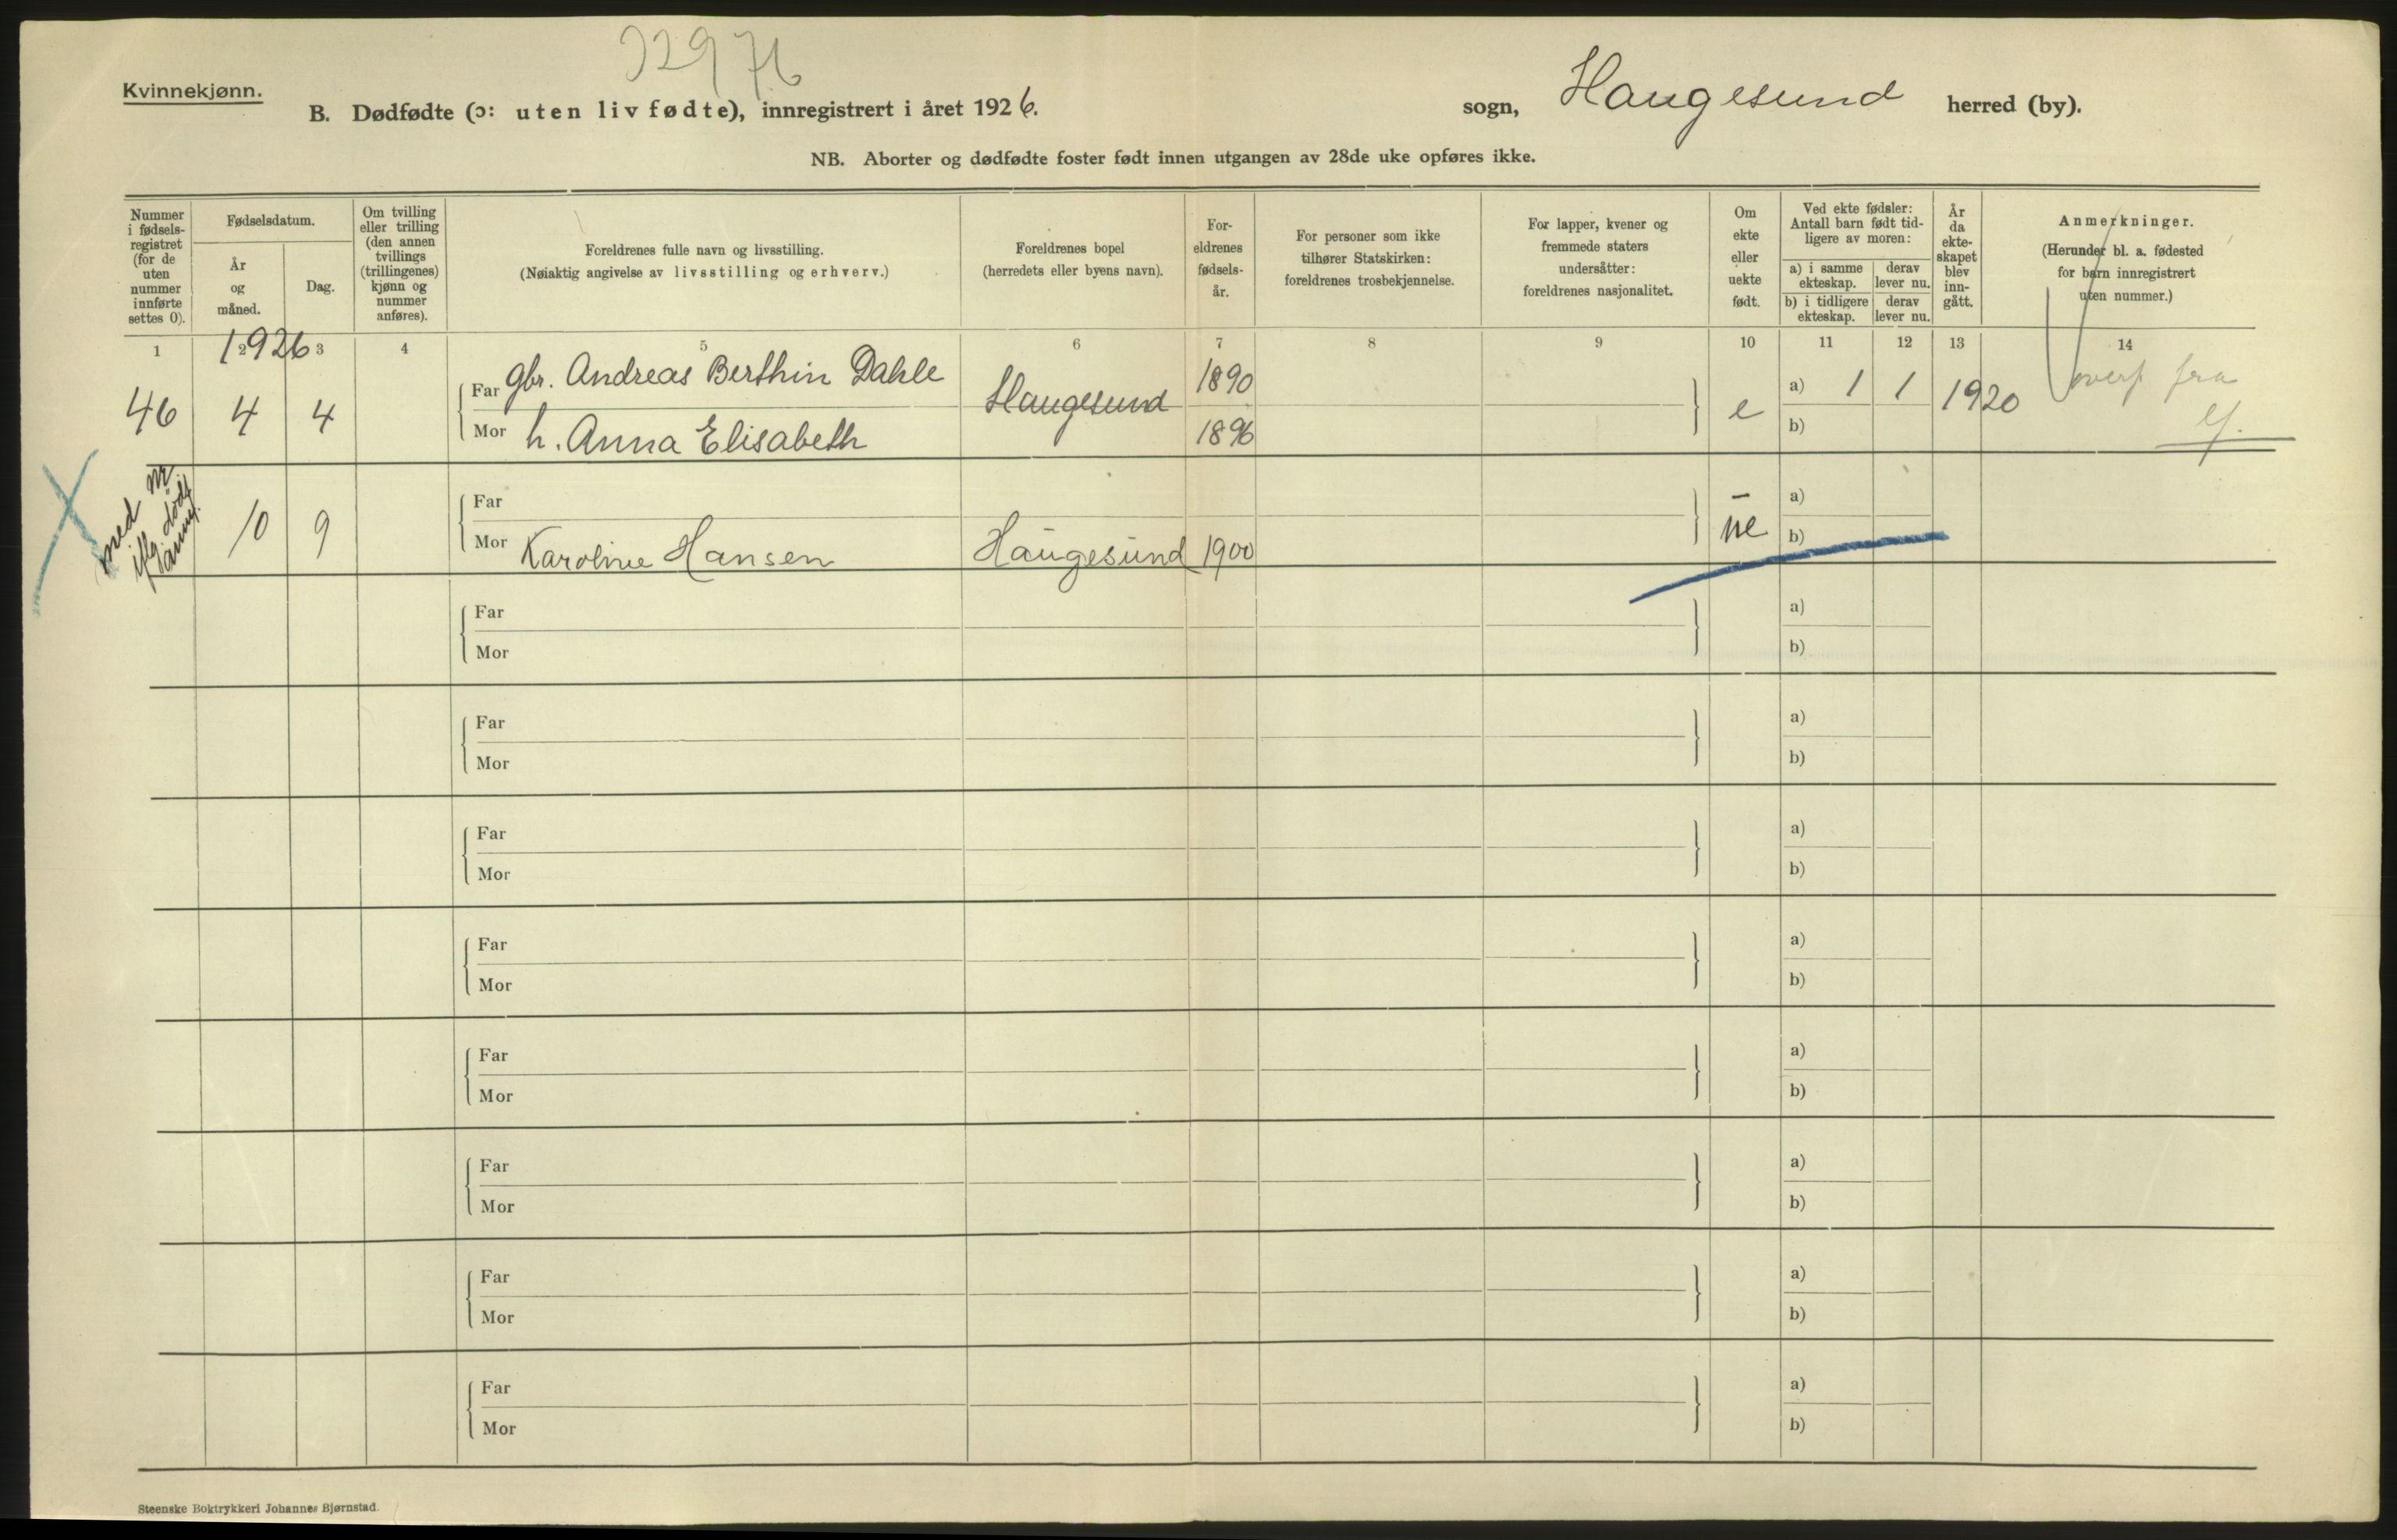 32976
Kvinnekjønn.
B. Dødfødte (ɔ: uten liv fødte), innregistrert i året 1926. sogn, Haugesund herred (by).
NB. Aborter og dødfødte foster født innen utgangen av 28de uke opføres ikke.
Nummer i fødsels- registret (for de uten nummer innførte settes 0).
Fødselsdatum.
År og måned.
Dag.
Om tvilling eller trilling (den annen tvillings (trillingenes) kjønn og nummer anføres).
Foreldrenes fulle navn og livsstilling.
(Nøiaktig angivelse av livsstilling og erhverv.)
Foreldrenes bopel
(herredets eller byens navn).
For- eldrenes fødsels- år.
For personer som ikke tilhører Statskirken: foreldrenes trosbekjennelse.
For lapper, kvener og fremmede staters undersåtter: foreldrenes nasjonalitet.
Om ekte eller uekte født.
Ved ekte fødsler: Antall barn født tid- ligere av moren:
a) i samme ekteskap. derav lever nu.
b) i tidligere ekteskap. derav lever nu.
År da ekte- skapet blev inn- gått.
Anmerkninger.
(Herunder bl. a. fødested for barn innregistrert uten nummer.)
1 2 3 4 5 6 7 8 9 10 11 12 13 14
1926
46 4 4 Far gbr. Andreas Berthin Dahle Haugesund 1890 e a) 1 1 1920 overf fra
Mor h. Anna Elisabeth 1896 b) lf.
med nr. iflg. dødf. anm.
10 9 Far – a)
Mor Karoline Hansen Haugesund 1900 ue b)
Far a)
Mor b)
Far a)
Mor b)
Far a)
Mor b)
Far a)
Mor b)
Far a)
Mor b)
Far a)
Mor b)
Far a)
Mor b)
Far a)
Mor b)
Steenske Boktrykkeri Johannes Bjørnstad.